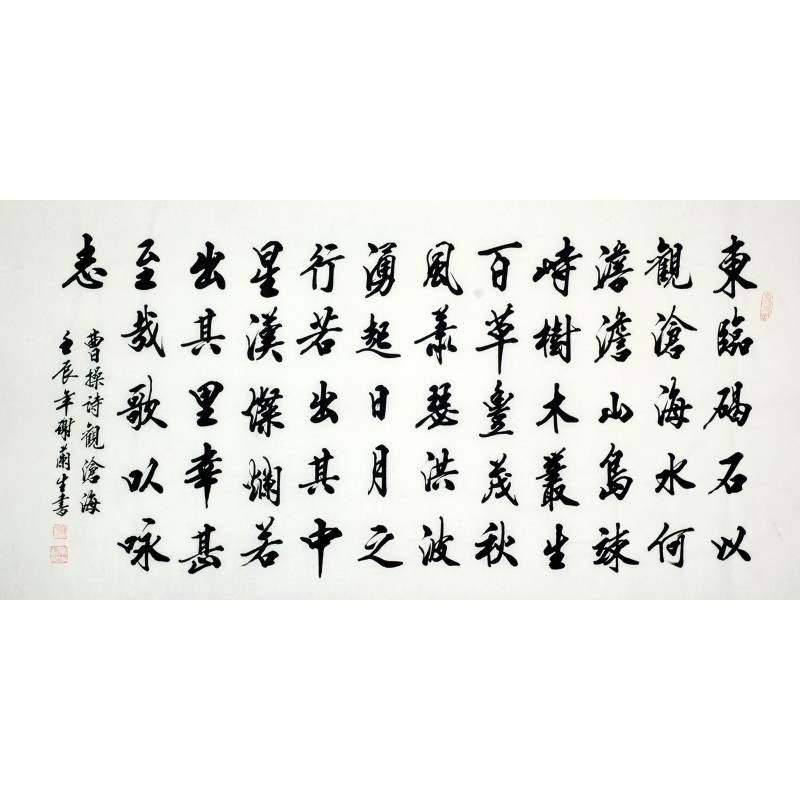 東臨碣石以
觀滄海水何
澹澹山島竦
峙樹木叢生
百草豊茂秋
風蕭瑟洪波
湧起日月之
行若出其中
星漢燦爛若
出其里幸甚
至哉歌以咏
志
曹操詩觀滄海
壬辰年謝蘭生書